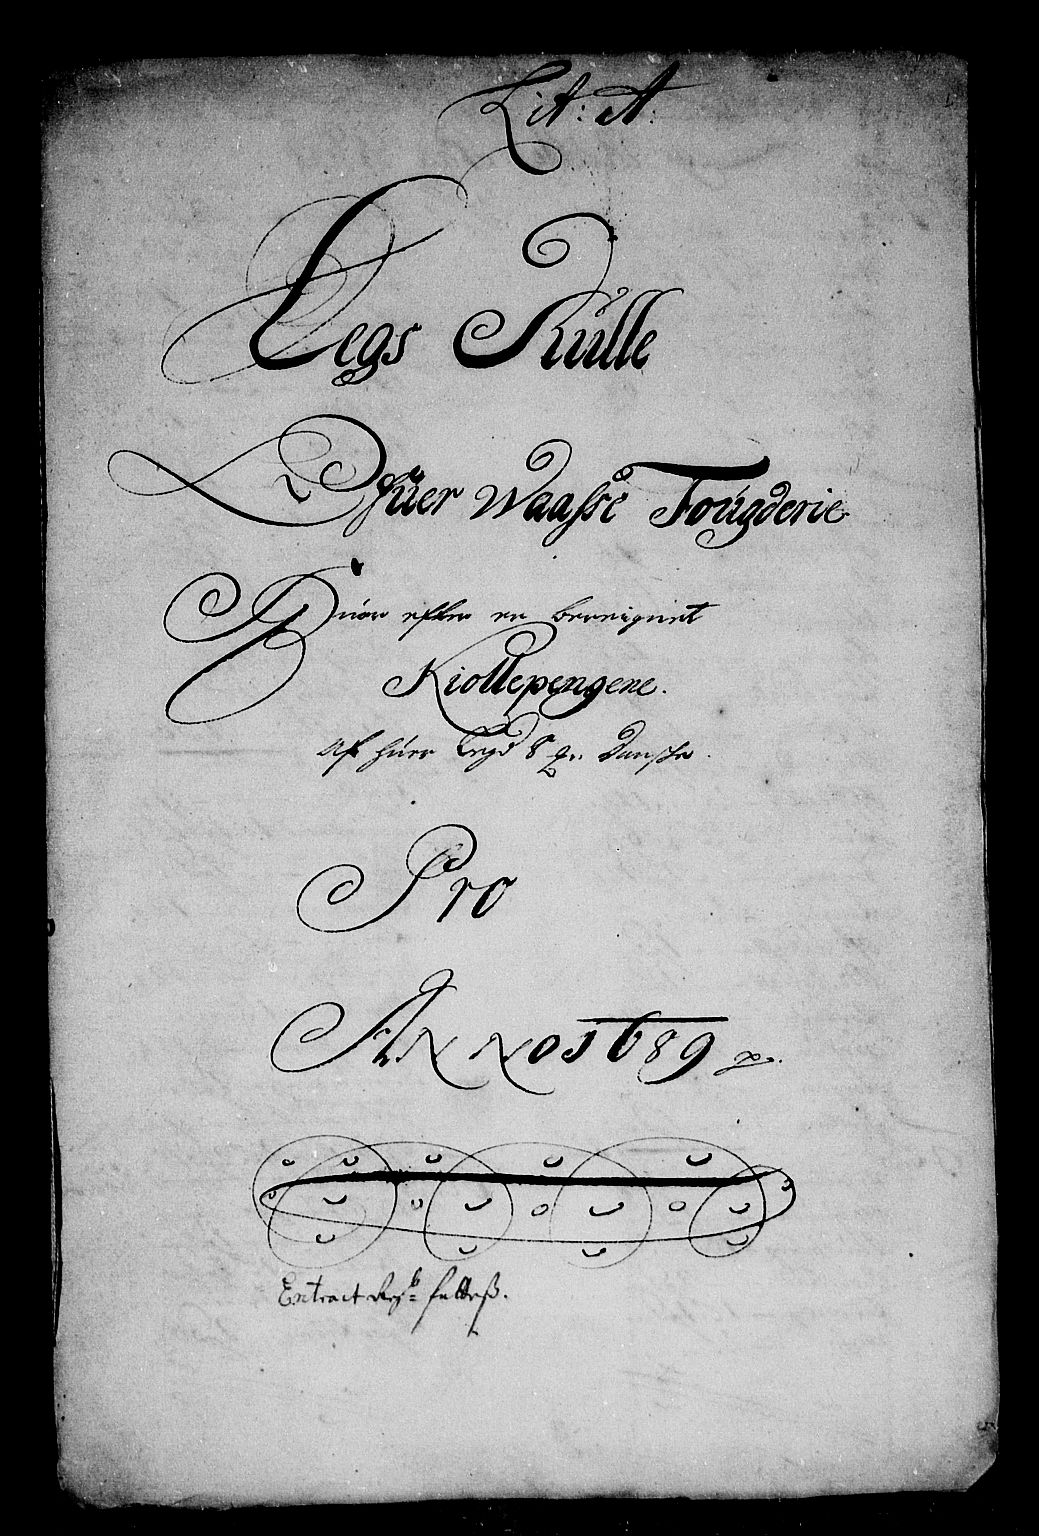 Lit: A:
Legs Rulle
Ofuer Waasse Fougderie
Huor efter er bereignet
Kiollepengene.
Af huer Legd 8 Danske.
Pro
ANNO 1689
Extract fattes.